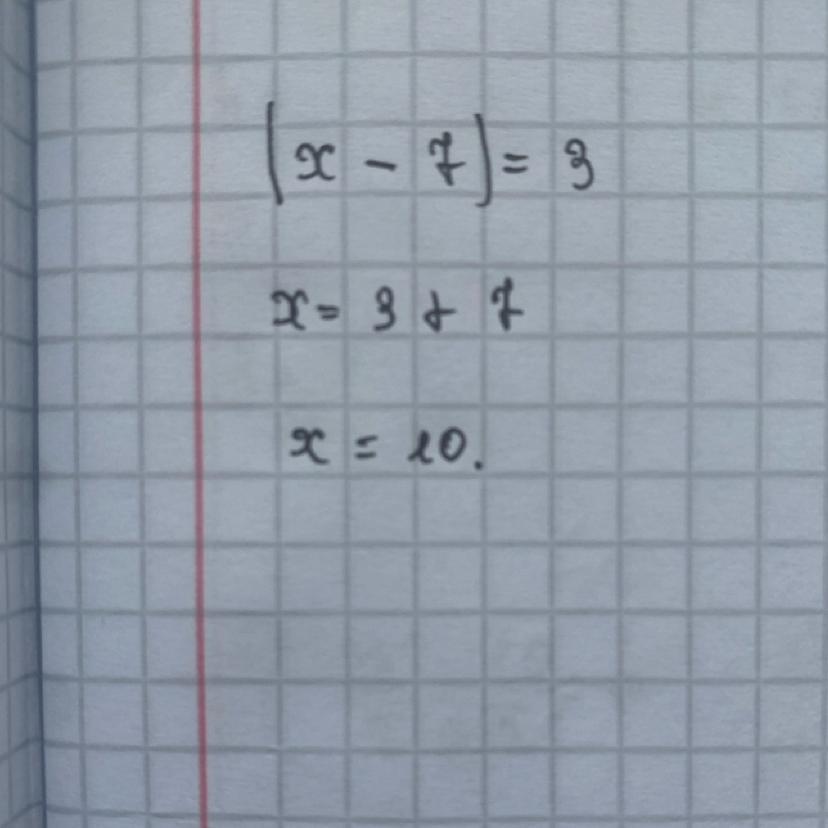 |x - 7| = 3
x = 3 + 7
x = 10.